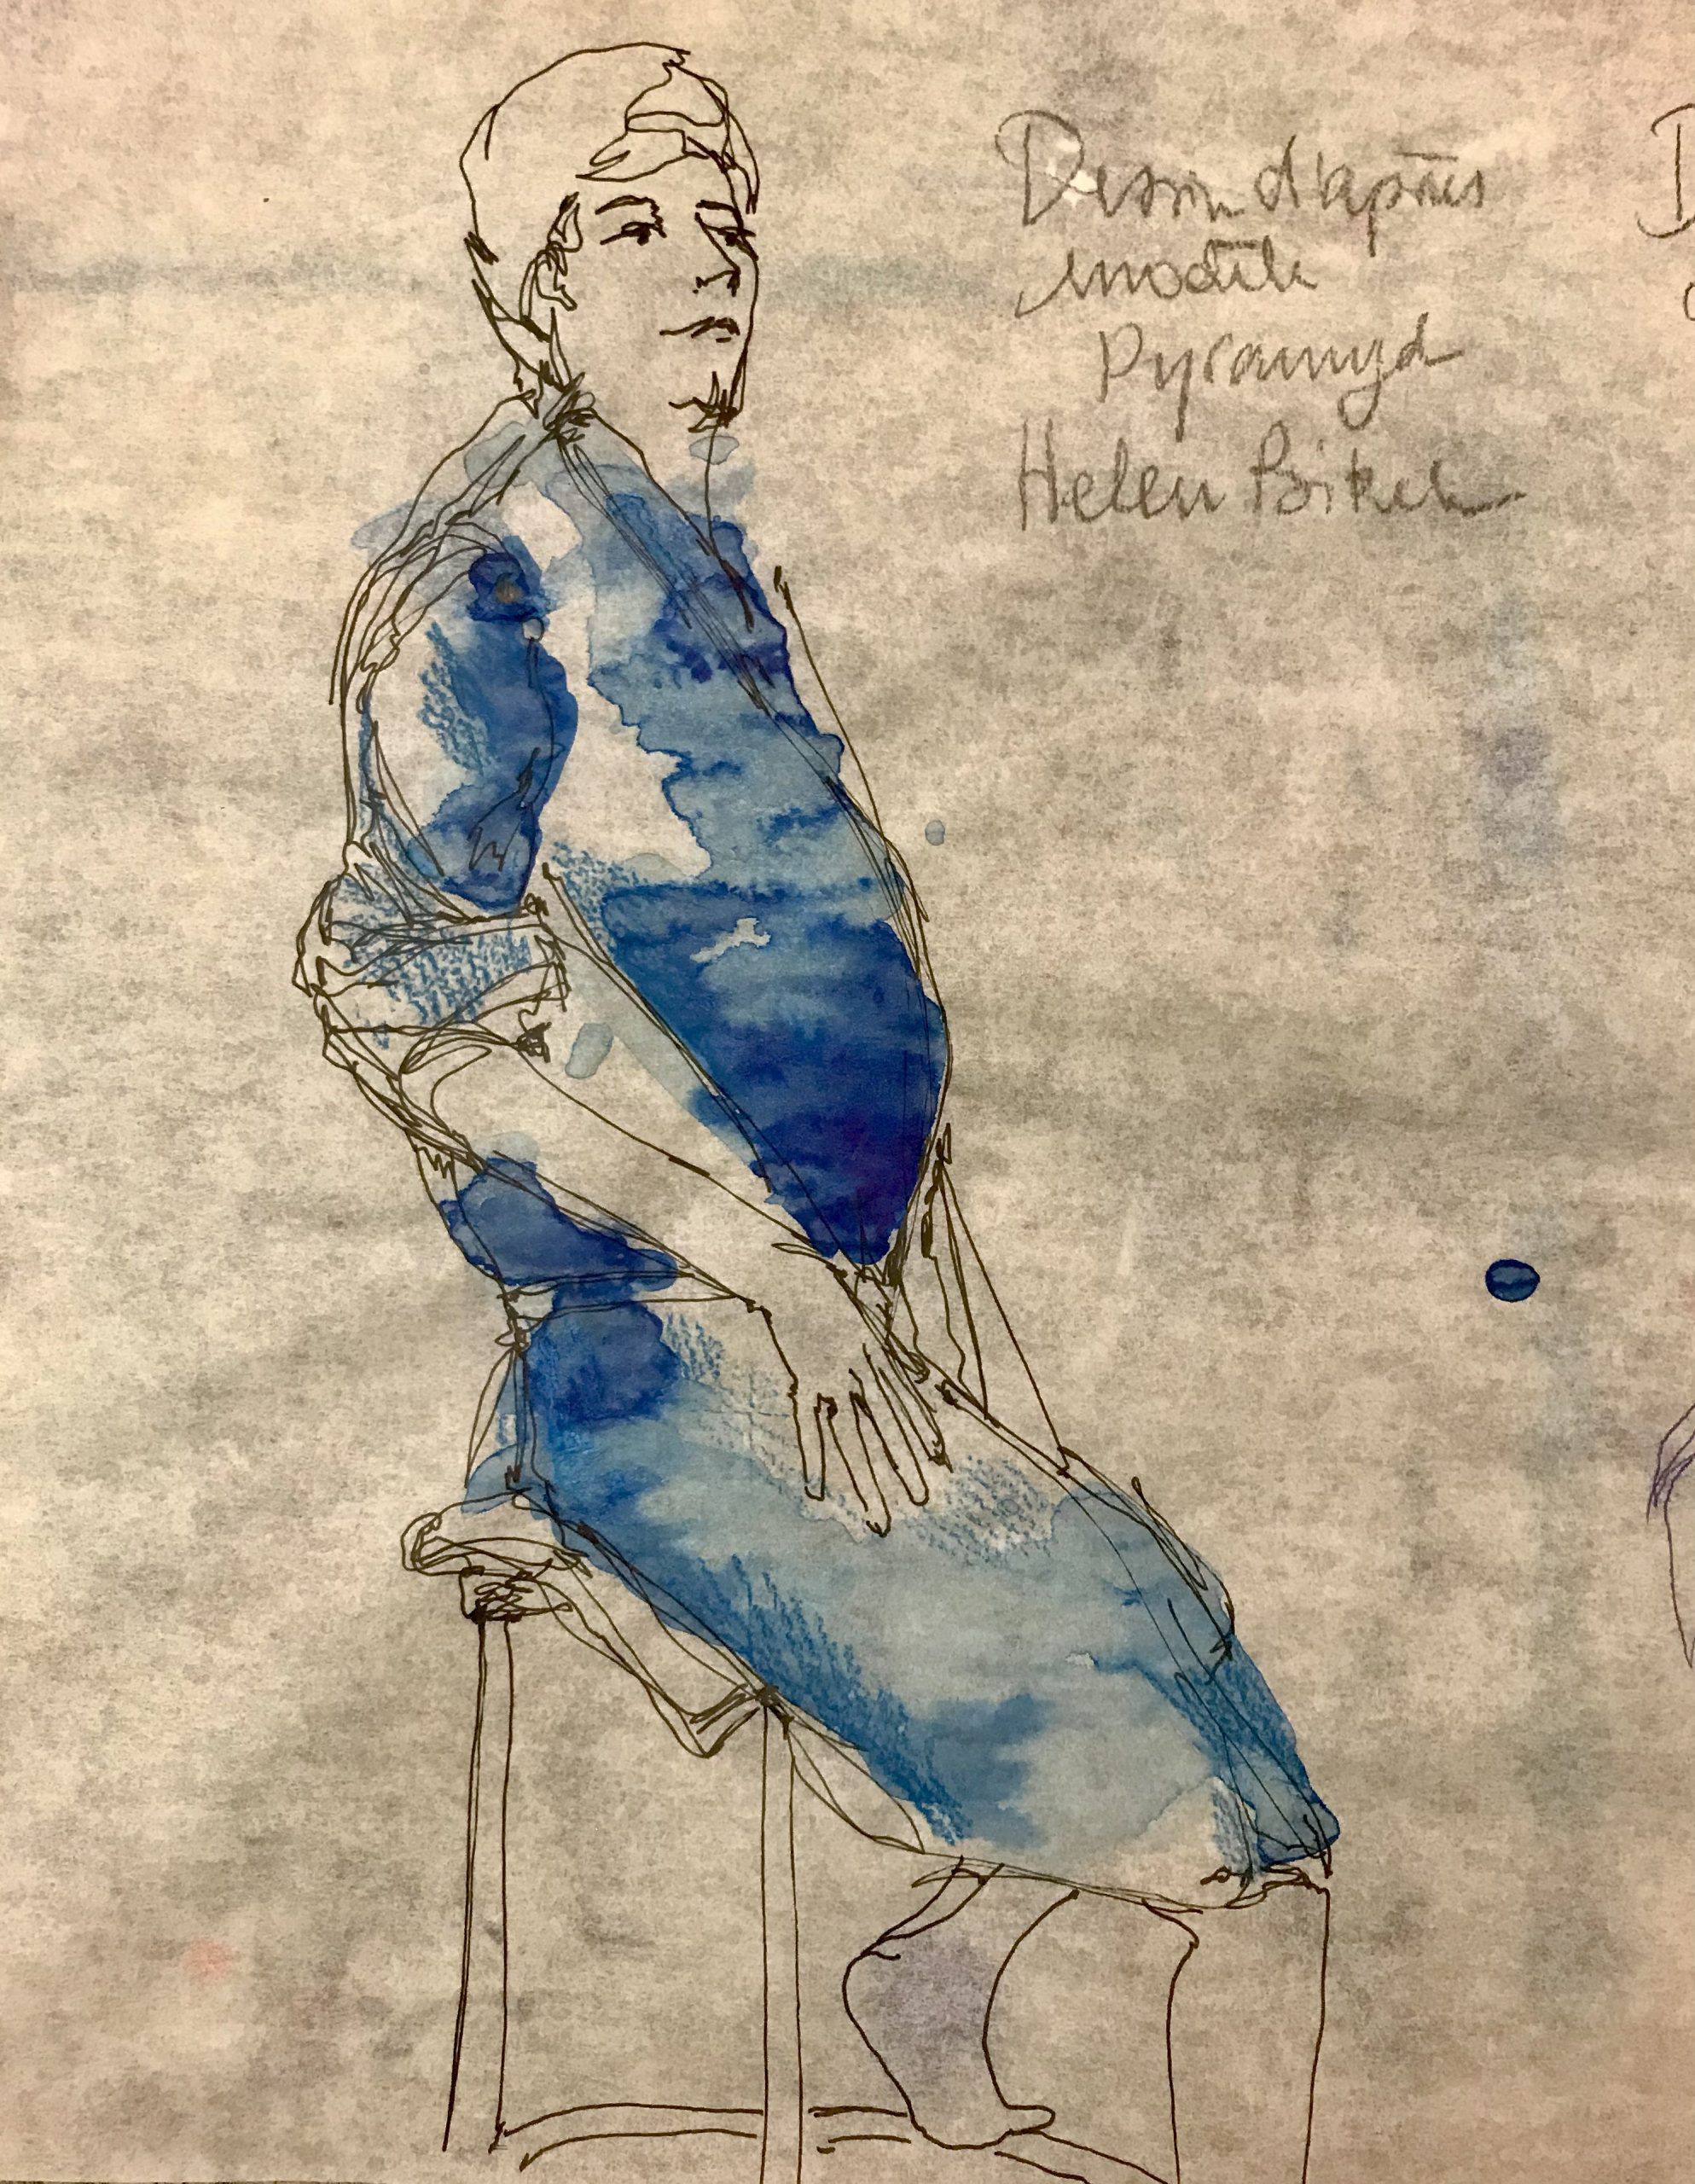 Dessin d'après
modèle
Pyramyd
Helen
D